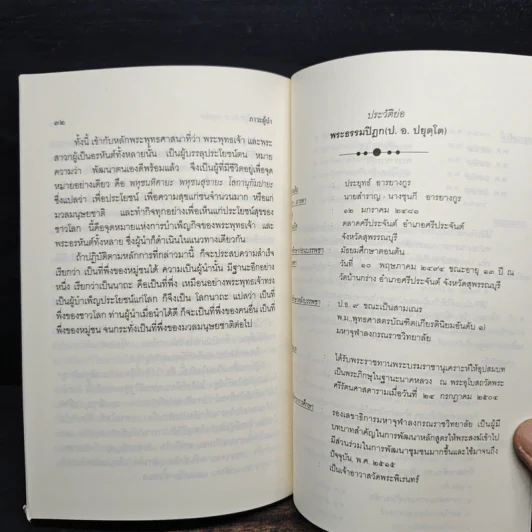 ๓๒
ภาวะผู้นำ
ทั้งนี้ เข้ากับหลักพระพุทธศาสนาที่ว่า พระพุทธเจ้า และพระ
สาวกผู้เป็นอรหันต์ทั้งหลายนั้น เป็นผู้บรรลุประโยชน์ตน หมาย
ความว่า พัฒนาตนเองดีพร้อมแล้ว จึงเป็นผู้ที่มีชีวิตอยู่เพื่อจุด
หมายอย่างเดียว คือ พหุชนหิตายะ พหุชนสุขายะ โลกานุกัมปายะ
ซึ่งแปลว่า เพื่อประโยชน์ เพื่อความสุขแก่ชนจำนวนมาก หรือแก่
มวลมนุษยชาติ และทำกิจทุกอย่างเพื่อเห็นแก่ประโยชน์สุขของ
ชาวโลก นี้คือจุดหมายแห่งการบำเพ็ญกิจของพระพุทธเจ้า และ
พระอรหันต์ทั้งหลาย ซึ่งผู้นำก็ดำเนินในแนวทางเดียวกัน
ถ้าปฏิบัติตามหลักการที่กล่าวมานี้ ก็จะประสบความสำเร็จ
เรียกว่า เป็นที่พึ่งของหมู่ชนได้ ความเป็นผู้นำนั้น มีฐานะอีกอย่าง
หนึ่ง เรียกว่าเป็นนาถะ คือเป็นที่พึ่ง เหมือนอย่างพระพุทธเจ้าทรง
เป็นผู้บำเพ็ญประโยชน์แก่โลก ก็จึงเป็น โลกนาถะ แปลว่า เป็นที่
พึ่งของชาวโลก ท่านผู้นำเมื่อนำได้ดี ก็จะเป็นที่พึ่งของคนอื่น เป็นที่
พึ่งของหมู่ชน จนกระทั่งเป็นที่พึ่งของมวลมนุษยชาติต่อไป
ประวัติย่อ
พระธรรมปิฎก(ป. อ. ปยุตฺโต)
ประยุทธ์ อารยางกูร
นายสำราญ - นางชุนกี อารยางกูร
๑๒ มกราคม ๒๔๘๑
ตลาดศรีประจันต์ อำเภอศรีประจันต์
จังหวัดสุพรรณบุรี
มัธยมศึกษาตอนต้น
วันที่ ๑๐ พฤษภาคม ๒๔๙๔ ขณะอายุ ๑๓ ปี ณ
วัดบ้านกร่าง อำเภอศรีประจันต์ จังหวัดสุพรรณบุรี
ป.ธ. ๙ ขณะเป็นสามเณร
พ.ม. พุทธศาสตรบัณฑิต(เกียรตินิยมอันดับ ๑)
มหาจุฬาลงกรณราชวิทยาลัย
ได้รับพระราชทานพระบรมราชานุเคราะห์ให้อุปสมบท
เป็นพระภิกษุในฐานะนาคหลวง ณ พระอุโบสถวัดพระ
ศรีรัตนศาสดารามเมื่อวันที่ ๒๔ กรกฎาคม ๒๕๐๔
รองเลขาธิการมหาจุฬาลงกรณราชวิทยาลัย เป็นผู้มี
บทบาทสำคัญในการพัฒนาหลักสูตรให้พระสงฆ์เข้าไป
มีส่วนร่วมในการพัฒนาชุมชนมากขึ้นและใช้มาจนถึง
ปัจจุบัน, พ.ศ. ๒๕๑๕
เป็นเจ้าอาวาสวัดพระพิเรนทร์